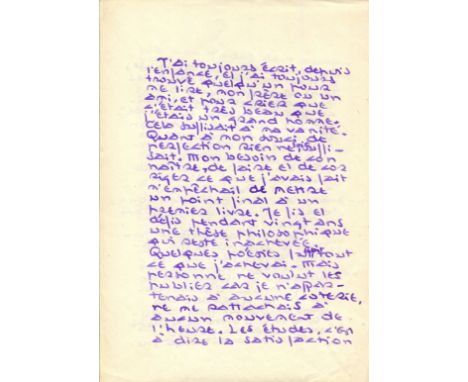 J'ai toujours écrit, depuis
l'enfance, et j'ai toujours
trouvé quelqu'un pour
me lire, mon père ou un
ami, et pour crier que
c'était très beau que
j'étais un grand homme.
Cela suffisait à ma vanité.
Quant à mon souci de
perfection rien ne suffi-
sait. Mon besoin de con
naître, de faire et de cor
riger ce que j'avais fait
m'empêchait de mettre
un point final à un
premier livre. Je fis et
défis pendant vingt ans
une thèse philosophique
qui reste inachevée.
Quelques poésies sont tout
ce que j'achevai. Mais
personne ne voulut les
publier car je n'appar-
tenais à aucune coterie,
ne me rattachais à
aucun mouvement de
l'heure. Les études, c'en
à dire la satisfaction